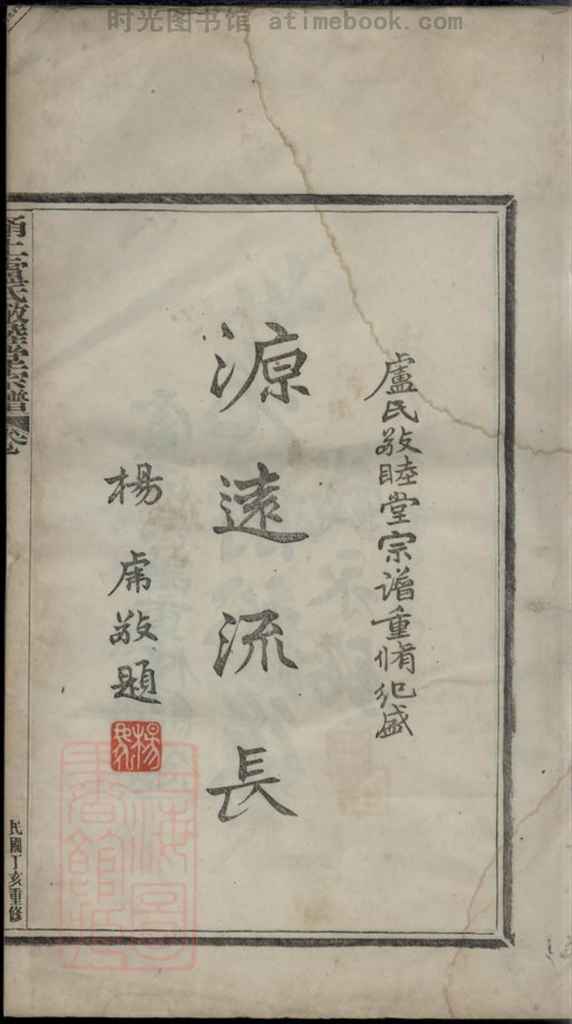 时光图书馆 atimebook.com
盧氏敬睦堂宗譜重脩紀盛
源遠流長
楊虎敬題
盧氏敬睦堂宗譜
民國丁亥重修